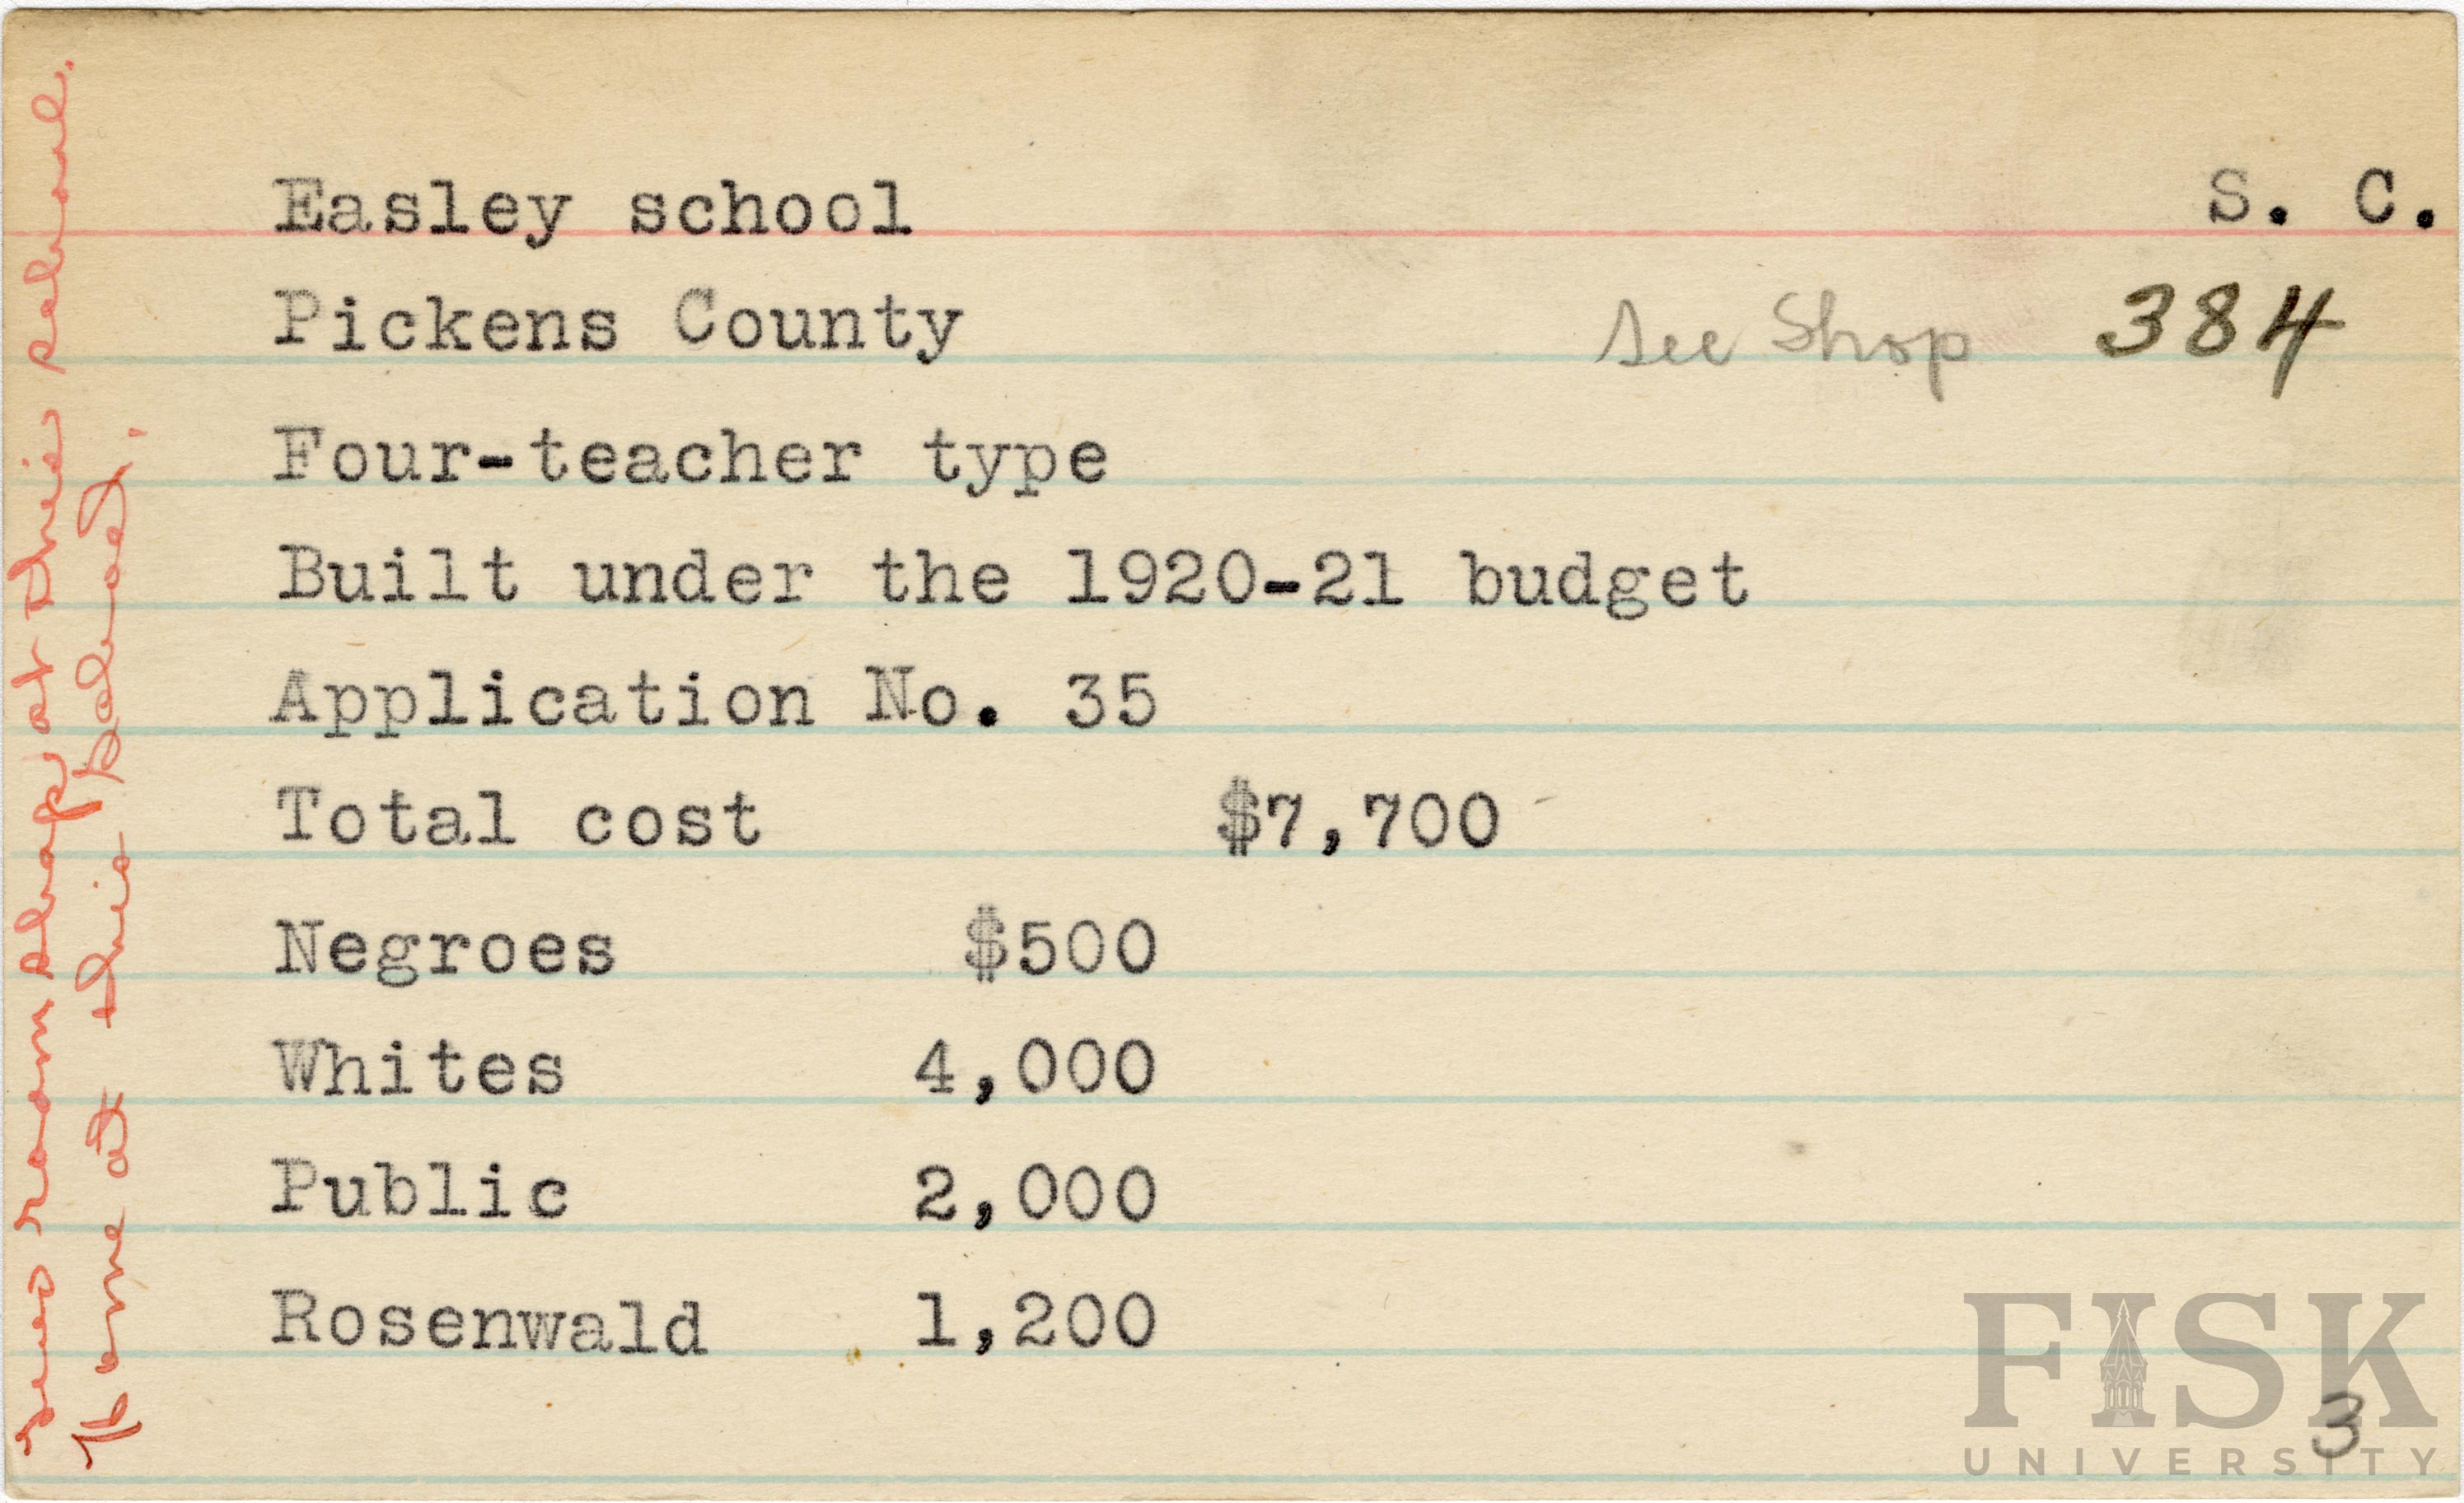 Easley school S. C.
Pickens County See Shop 384
Four-teacher type
Built under the 1920-21 budget
Application No. 35
Total cost $7,700
Negroes $500
Whites 4,000
Public 2,000
Rosenwald 1,200
3
FISK
UNIVERSITY
room shop at this school.
Home at this school.